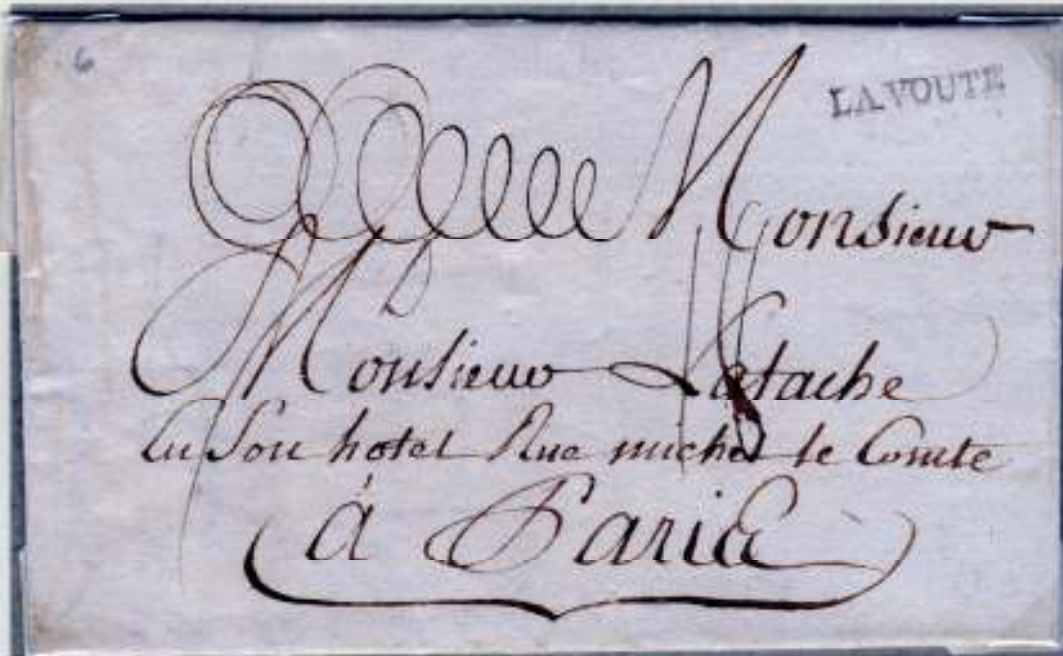 6
LAVOUTE
Monsieur
Monsieur Latache
En Son hotel Rue michel le Comte
à Paris